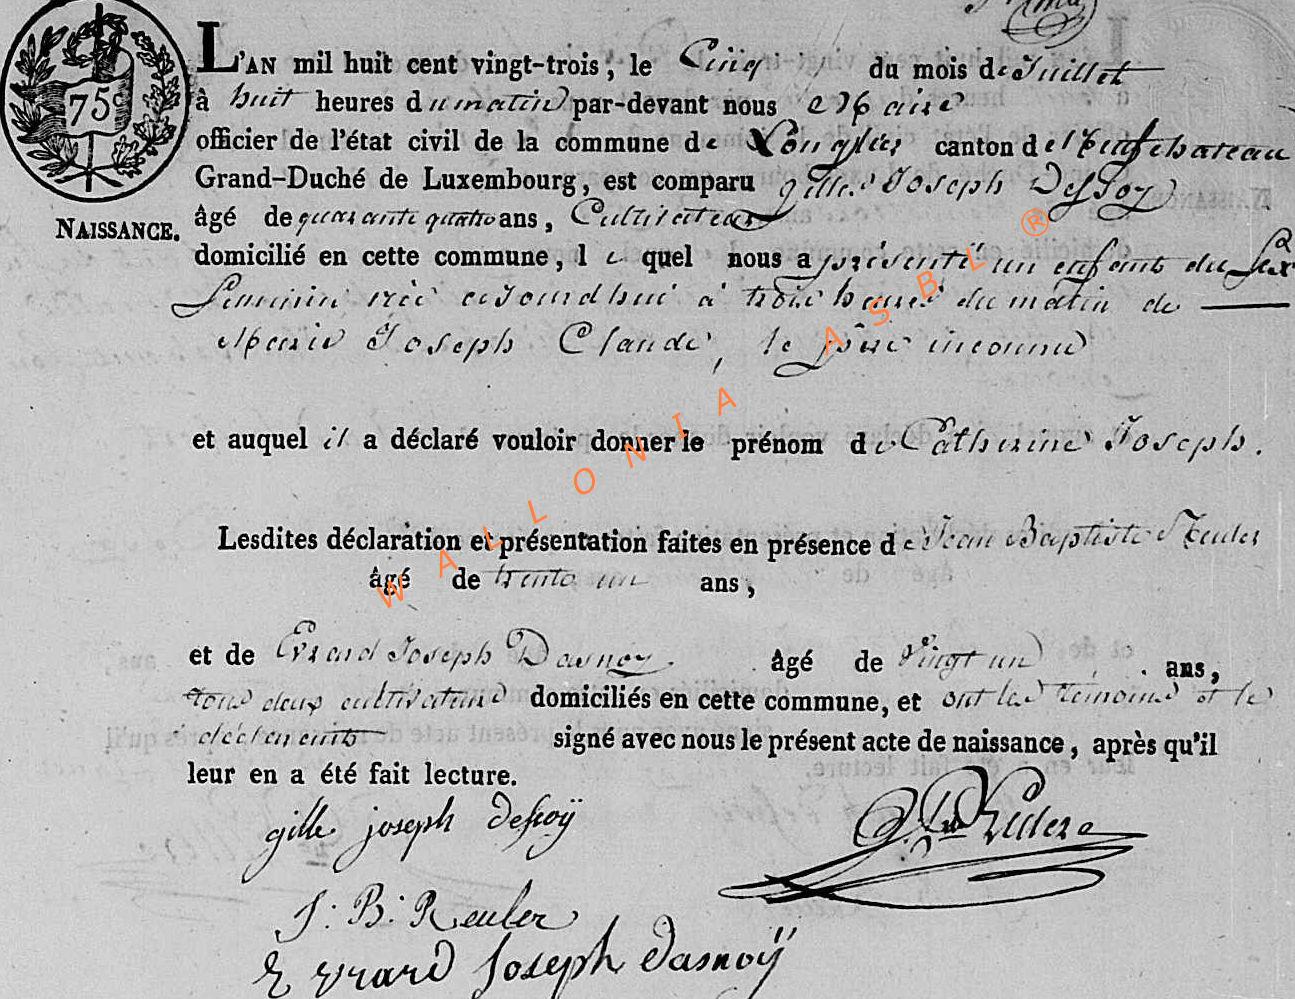 75c
NAISSANCE.
L'AN mil huit cent vingt-trois, le Cinq du mois de Juillet
à huit heures du matin par-devant nous Maire
officier de l'état civil de la commune de Longlier canton de Neufchateau
Grand-Duché de Luxembourg, est comparu gille Joseph Desfoÿ
âgé de quarante quatre ans, Cultivateur
domicilié en cette commune, lequel nous a présenté un enfant du Sexe
feminin née ajourdhui à trois heures du matin de
Marie Joseph Claude, le père inconnu
et auquel il a déclaré vouloir donner le prénom de Catherine Joseph.
Lesdites déclaration et présentation faites en présence de Jean Baptiste Reuler
âgé de trente un ans,
et de Evrard Joseph Dasnoy âgé de vingt un ans,
tous deux cultivateurs domiciliés en cette commune, et ont les temoins et le
déclarant signé avec nous le présent acte de naissance, après qu'il
leur en a été fait lecture.
gille joseph desfoÿ
J: B: Reuler
Evrard Joseph dasnoÿ
WALLONIA ASBL ®